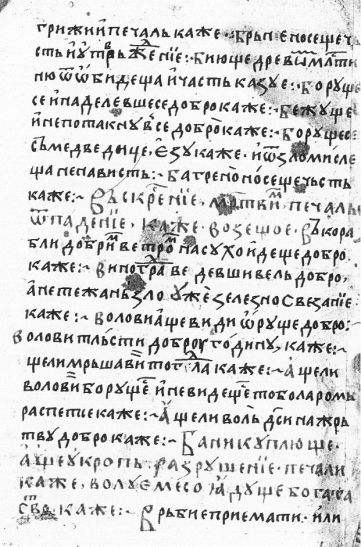 грижи и печаль каже · брьⷨе носещечь
сть и ѹтврьжⷣенїе :~ бїюще древом мати
ню ѿ ѡбиде ща и часть казуе : борѹще
се и падевшесе добро каже :~ бежѹще
и непотакнувсе добрѡ каже :~ борѹщесе
съ медведице, езу каже, и ѿ зломисле
ща ненависть :~ батренѡ носещечьсть
каже :~ Въскрⷭ҇енїе, мртви печаль
ѿпаденїе, каже возещое : Въ кора
бли добрим ветром на сухо идещедобро
каже :~ виногра веⷣ девши вель добро,
а нетежань зло уже зелезно свезанїе
каже :~ волови аще види ѿ рѹщедобро :
волови тльсти доброу годинѹ, каже :~
щели мршави то глаⷣ каже :~ Аще ли
волови борѹще и невидещето боларомь
распетїе каже :~ Аще ли воль дⷭ҇си на жрь
твѹ добро каже :~ Бани кѹплюще,
аще ѹкропь, разрѹшенїе печали
каже, волѹе месо ꙗдѹще богата
ство каже :~ Врьбїе приемати, или